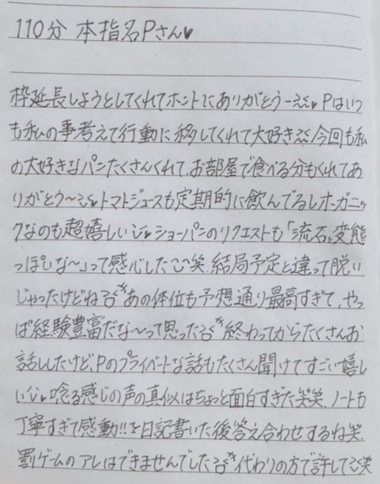 110分 本指名Pさん♥
枠延長しようとしてくれてホントにありがとうーえ♥Pはいつ
も私の事考えて行動に移してくれて大好き 今回も私
の大好きなパンたくさんくれて、お部屋で食べる分もくれてあ
りがとう〜 トマトジュースも定期的に飲んでるしオーガニッ
クなのも超嬉しい♥ショーパンのリクエストも「流石、変態
っぽいな〜」って感心した 笑 結局予定と違って脱い
じゃったけどね あの体位も予想通り最高すぎて、やっ
ぱ経験豊富だな〜って思った 終わってからたくさんお
話ししたけど、Pのプライベートな話もたくさん聞けてすごい嬉し
い♥唸る感じの声の真似はちょっと面白すぎた笑笑 ノートも
丁寧すぎて感動!!を日記書いた後答え合わせするね笑
罰ゲームのアレはできませんでした 代わりの方で許して 笑